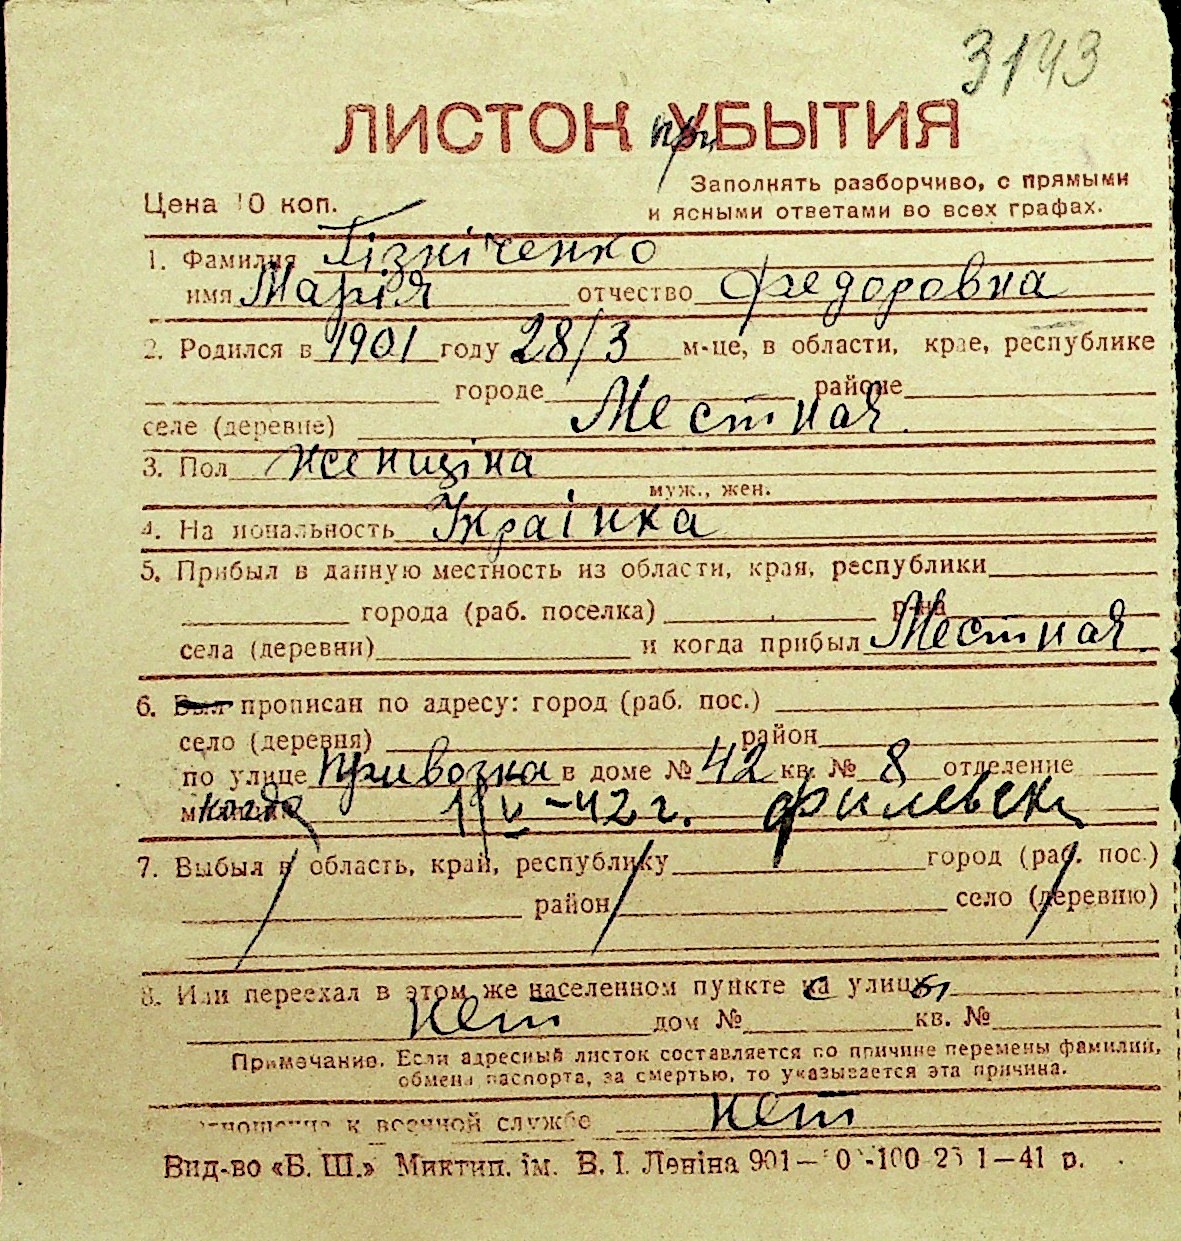 3143
ЛИСТОК при УБЫТИЯ
Заполнять разборчиво, с прямыми
Цена 10 коп. и ясными ответами во всех графах.
1. Фамилия Гізніченко
имя Марія отчество Федоровна
2. Родился в 1901 году 28/3 м-це, в области, крае, республике
городе районе
селе (деревне) Местная
3. Пол женщіна
муж., жен.
4. Национальность Украінка
5. Прибыл в данную местность из области, края, республики
города (раб. поселка) р-на
села (деревни) и когда прибыл Местная
6. Был прописан по адресу: город (раб. пос.)
село (деревня) район
по улице Привозна в доме № 42 кв. № 8 отделение
когда 1/V-42 г.
7. Выбыл в область, край, республику город (раб. пос.)
район село (деревню)
8. Или переехал в этом же населенном пункте с улицы
нет дом № кв. №
Примечание. Если адресный листок составляется по причине перемены фамилии,
обмена паспорта, за смертью, то указывается эта причина.
отношение к военной службе нет
Вид-во «Б. Ш.» Миктип. ім. В. І. Леніна 901— 1—41 р.